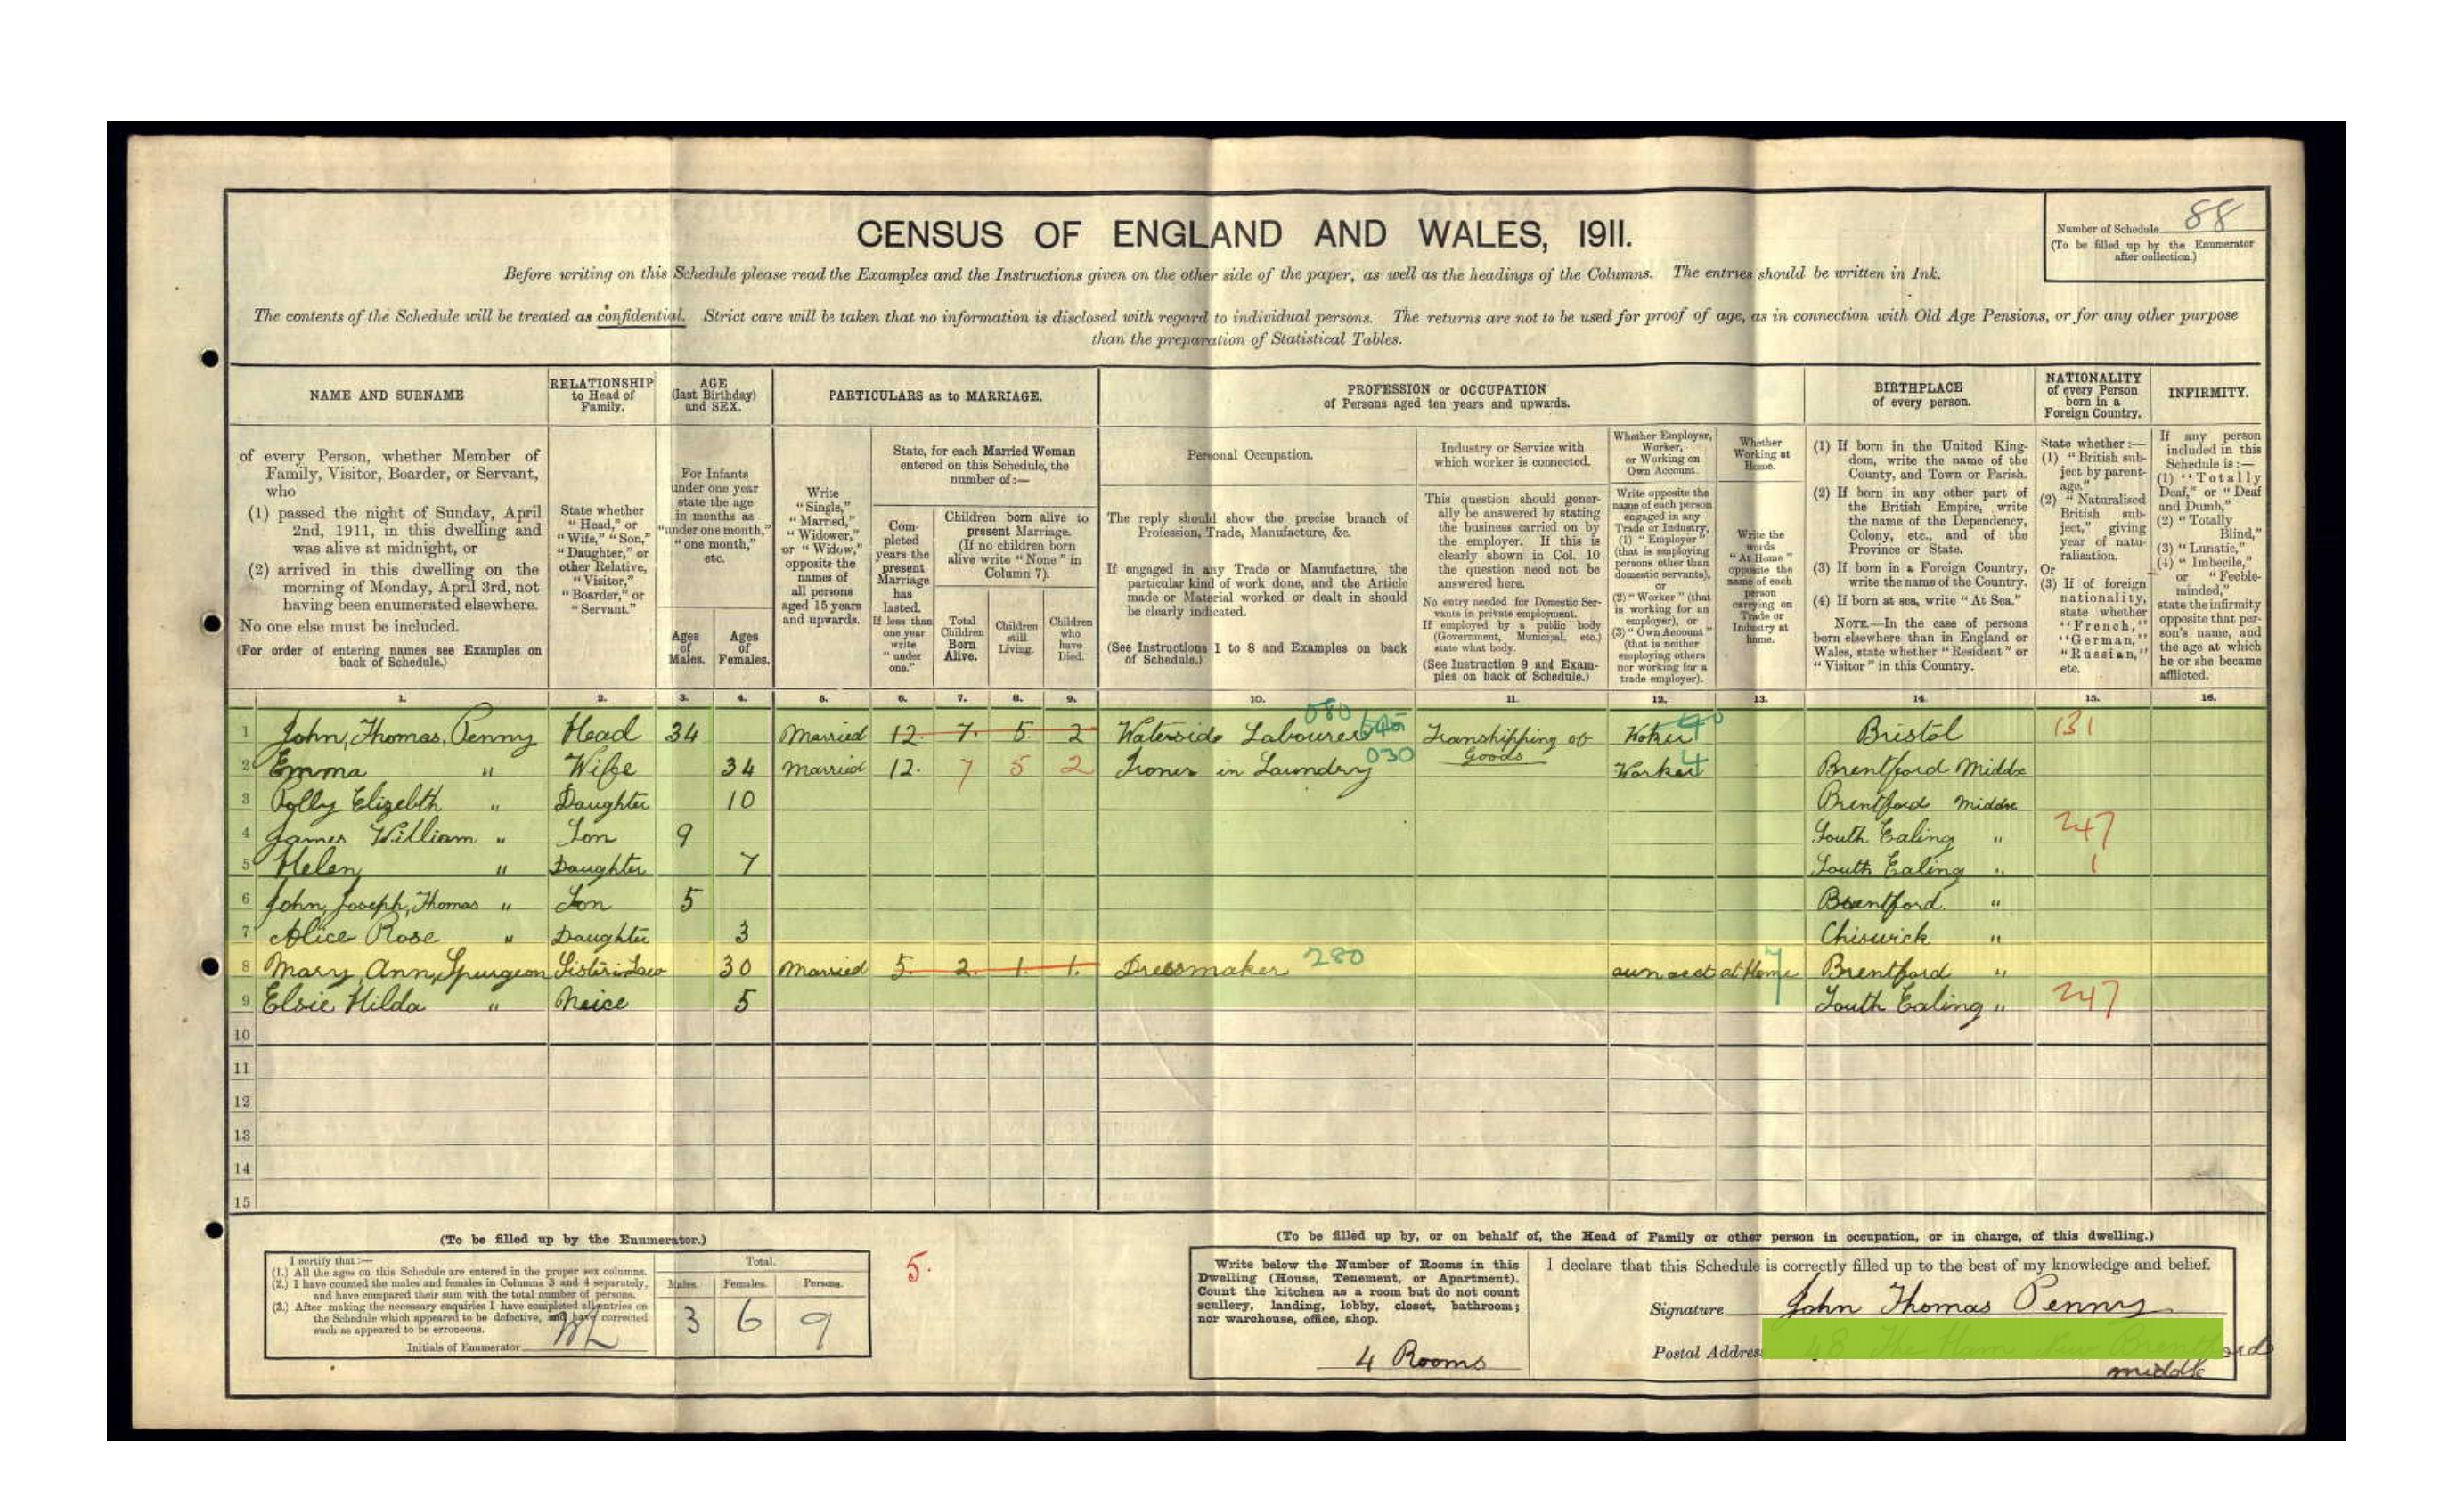 CENSUS OF ENGLAND AND WALES, 1911.
Number of Schedule 88
(To be filled up by the Enumerator
after collection.)
Before writing on this Schedule please read the Examples and the Instructions given on the other side of the paper, as well as the headings of the Columns. The entries should be written in Ink.
The contents of the Schedule will be treated as confidential. Strict care will be taken that no information is disclosed with regard to individual persons. The returns are not to be used for proof of age, as in connection with Old Age Pensions, or for any other purpose
than the preparation of Statistical Tables.
NAME AND SURNAME
of every Person, whether Member of
Family, Visitor, Boarder, or Servant,
who
(1) passed the night of Sunday, April
2nd, 1911, in this dwelling and
was alive at midnight, or
(2) arrived in this dwelling on the
morning of Monday, April 3rd, not
having been enumerated elsewhere.
No one else must be included.
(For order of entering names see Examples on
back of Schedule.)
RELATIONSHIP
to Head of
Family.
State whether
"Head," or
"Wife," "Son,"
"Daughter," or
other Relative,
"Visitor,"
"Boarder," or
"Servant."
AGE
(last Birthday)
and SEX.
For Infants
under one year
state the age
in months as
"under one month,"
"one month,"
etc.
Ages
of
Males.
Ages
of
Females.
PARTICULARS as to MARRIAGE.
Write
"Single,"
"Married,"
"Widower,"
or "Widow,"
opposite the
names of
all persons
aged 15 years
and upwards.
State, for each Married Woman
entered on this Schedule, the
number of:—
Com-
pleted
years the
present
Marriage
has
lasted.
If less than
one year
write
"under
one."
Children born alive to
present Marriage.
(If no children born
alive write "None" in
Column 7).
Total
Children
Born
Alive.
Children
still
Living.
Children
who
have
Died.
PROFESSION or OCCUPATION
of Persons aged ten years and upwards.
Personal Occupation.
The reply should show the precise branch of
Profession, Trade, Manufacture, &c.
If engaged in any Trade or Manufacture, the
particular kind of work done, and the Article
made or Material worked or dealt in should
be clearly indicated.
(See Instructions 1 to 8 and Examples on back
of Schedule.)
Industry or Service with
which worker is connected.
This question should gener-
ally be answered by stating
the business carried on by
the employer. If this is
clearly shown in Col. 10
the question need not be
answered here.
No entry needed for Domestic Ser-
vants in private employment.
If employed by a public body
(Government, Municipal, etc.)
state what body.
(See Instruction 9 and Exam-
ples on back of Schedule.)
Whether Employer,
Worker,
or Working on
Own Account.
Write opposite the
name of each person
engaged in any
Trade or Industry,
(1) "Employer"
(that is employing
persons other than
domestic servants),
or
(2) "Worker" (that
is working for an
employer), or
(3) "Own Account"
(that is neither
employing others
nor working for a
trade employer).
Whether
Working at
Home.
Write the
words
"At Home"
opposite the
name of each
person
carrying on
Trade or
Industry at
home.
BIRTHPLACE
of every person.
(1) If born in the United King-
dom, write the name of the
County, and Town or Parish.
(2) If born in any other part of
the British Empire, write
the name of the Dependency,
Colony, etc., and of the
Province or State.
(3) If born in a Foreign Country,
write the name of the Country.
(4) If born at sea, write "At Sea."
NOTE.—In the case of persons
born elsewhere than in England or
Wales, state whether "Resident" or
"Visitor" in this Country.
NATIONALITY
of every Person
born in a
Foreign Country.
State whether:—
(1) "British sub-
ject by parent-
age."
(2) "Naturalised
British sub-
ject," giving
year of natu-
ralisation.
Or
(3) If of foreign
nationality,
state whether
"French,"
"German,"
"Russian,"
etc.
INFIRMITY.
If any person
included in this
Schedule is:—
(1) "Totally
Deaf," or "Deaf
and Dumb,"
(2) "Totally
Blind,"
(3) "Lunatic,"
(4) "Imbecile,"
or "Feeble-
minded,"
state the infirmity
opposite that per-
son's name, and
the age at which
he or she became
afflicted.
1. 2. 3. 4. 5. 6. 7. 8. 9. 10. 11. 12. 13. 14. 15. 16.
1 John, Thomas, Penny Head 34 Married 12. 7. 5. 2 Waterside Labourer 080 Transhipping of Goods Bristol 131
2 Emma " Wife 34 Married 12. 7 5 2 Ironer in Laundry 030 Worker 4 Brentford Middx
3 Polly Elizebth " Daughter 10 Brentford Middx
4 James William " Son 9 South Ealing " 247
5 Helen " Daughter 7 South Ealing " 1
6 John, Joseph, Thomas " Son 5 Brentford "
7 Alice Rose " Daughter 3 Chiswick "
8 Mary, Ann, Spurgeon Sister in Law 30 Married 5. 2. 1. 1. Dressmaker 280 own acct at Home 7 Brentford "
9 Elsie Hilda " Neice 5 South Ealing " 247
10
11
12
13
14
15
(To be filled up by the Enumerator.)
I certify that:—
(1.) All the ages on this Schedule are entered in the proper sex columns.
(2.) I have counted the males and females in Columns 3 and 4 separately,
and have compared their sum with the total number of persons.
(3.) After making the necessary enquiries I have completed all entries on
the Schedule which appeared to be defective, and have corrected
such as appeared to be erroneous.
Initials of Enumerator
Total.
Males. Females. Persons.
3 6 9
5.
(To be filled up by, or on behalf of, the Head of Family or other person in occupation, or in charge, of this dwelling.)
Write below the Number of Rooms in this
Dwelling (House, Tenement, or Apartment).
Count the kitchen as a room but do not count
scullery, landing, lobby, closet, bathroom;
nor warehouse, office, shop.
4 Rooms
I declare that this Schedule is correctly filled up to the best of my knowledge and belief.
Signature John Thomas Penny
Postal Address
middx